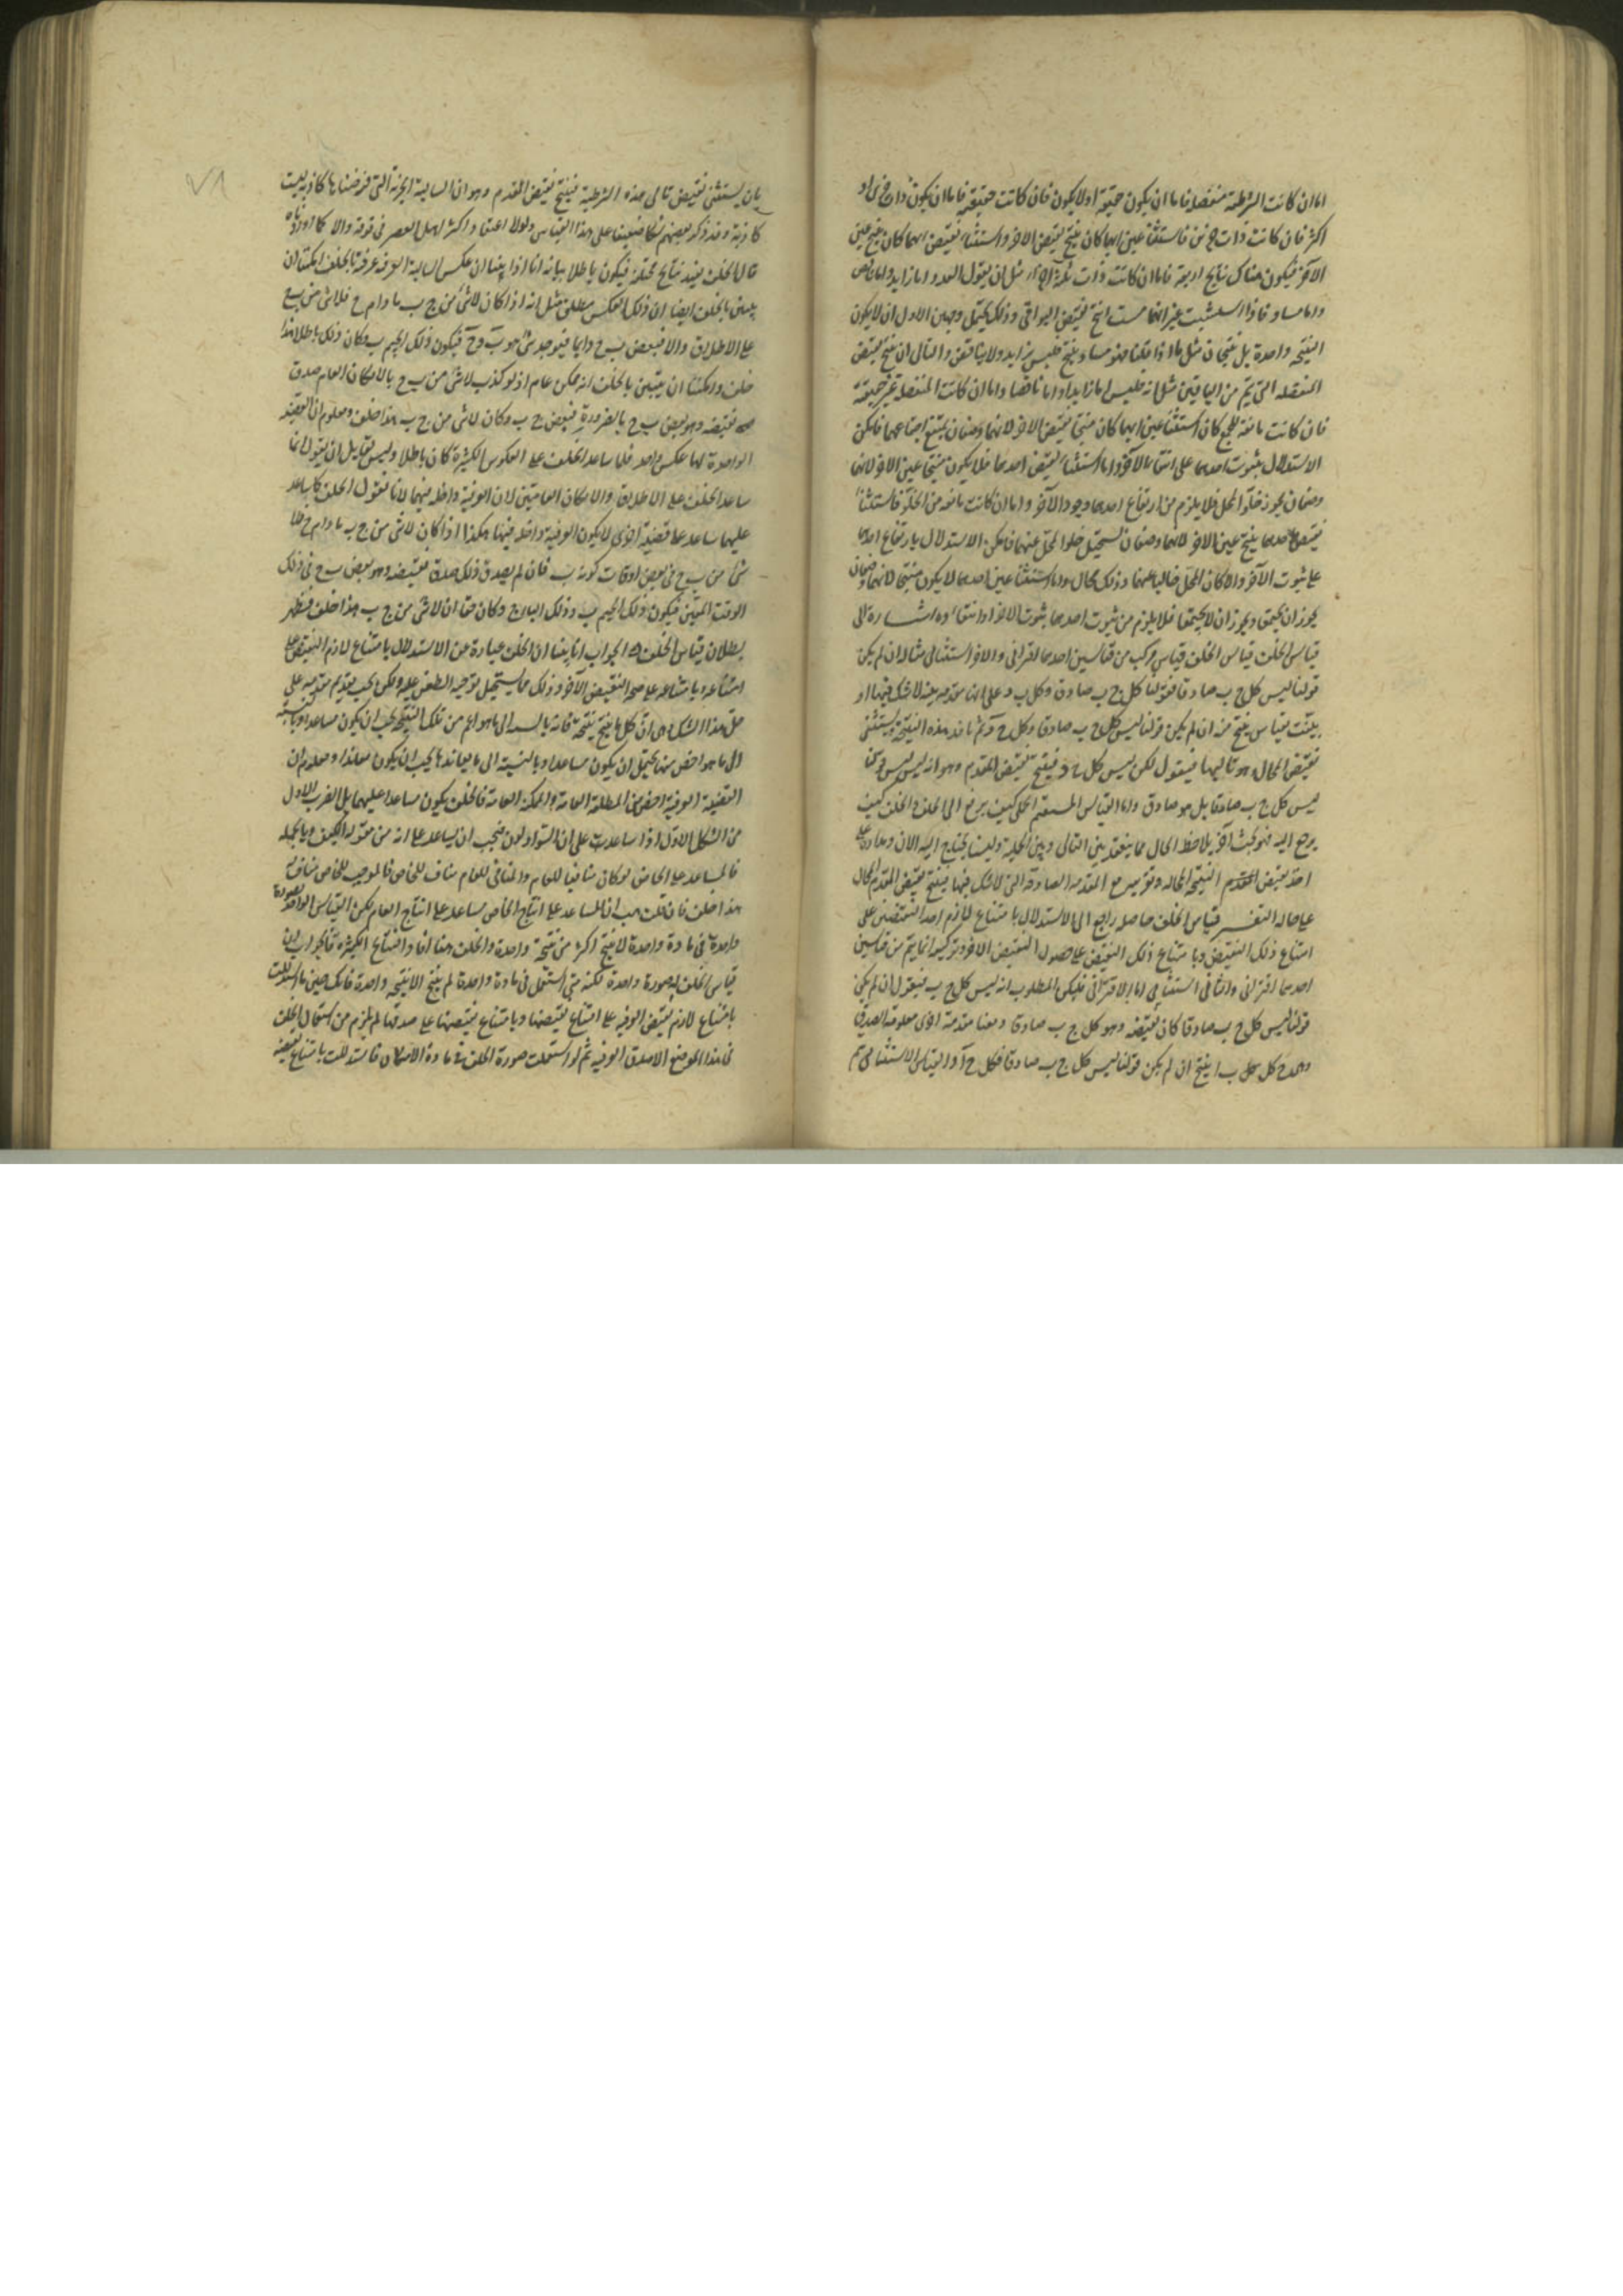 اما ان كانت الشرطية منفصلة فاما ان يكون حقيقية او لا يكون فان كانت حقيقية فاما ان يكون ذات جزئين او
اكثر فان كانت ذات جزئين فاستثناء عين ايهما كان ينتج نقيض الاخر واستثناء نقيض ايهما كان ينتج عين
الآخر فيكون هناك نتايج اربعة فاما ان كانت ذات ثلثة اجزاء مثل ان يقول العدد اما زايد واما ناقص
واما مساو فاذا استثنيت عين انتج نقيض البواقي وذلك يحتمل وجهين الاول ان لا يكون
النتيجة واحدة بل نتيجتان مثل ما اذا قلنا هو مساو ينتج فليس بزايد ولا بناقص والثاني ان ينتج نقيض
المنفصلة التي يتم من الباقيين مثل انه فليس اما زايدا او اما ناقصا واما ان كانت المنفصلة غير حقيقية
فان كانت مانعة للجمع كان استثناء عين ايهما كان منتجا نقيض الاخر لانهما وصفان يمتنع اجتماعهما فامكن
الاستدلال بثبوت احدهما على انتفاء الآخر واما استثناء نقيض احدهما فلا يكون منتجا عين الاخر لانهما
وصفان يجوز خلو المحل فلا يلزم من ارتفاع احدهما وجود الآخر واما ان كانت مانعة من الخلو فاستثناء
نقيض احدهما ينتج عين الاخر لانهما وصفان يستحيل خلو المحل عنهما فامكن الاستدلال بارتفاع احدهما
على ثبوت الآخر والا كان المحل خاليا عنهما وذلك محال واما استثناء عين احدهما لا يكون منتجا لانهما وصفان
يجوز ان يجتمعا ويجوز ان لا يجتمعا فلا يلزم من ثبوت احدهما ثبوت الاخر او انتفاؤه اشارة الى
قياس الخلف قياس الخلف قياس مركب من قياسين احدهما اقتراني والاخر استثنائي مثاله ان لم يكن
قولنا ليس كل ج ب صادقا فقولنا كل ج ب صادق وكل ب د على انها مقدمة بينة لا شك فيها او
بينت بقياس ينتج منه ان لم يكن قولنا ليس كل ج ب صادقا وكل ج د ثم ناخذ هذه النتيجة ويستثنى
نقيض المحال وهو تاليها فيقول لكن ليس كل ج د فينتج نقيض المقدم وهو انه ليس ليس قولنا
ليس كل ج ب صادقا بل هو صادق واما القياس المستقيم الحملي كيف يرجع الى الخلف والخلف كيف
يرجع اليه فهو بحث آخر يلاحظ الحال مما ينعقد بين التالي وبين الحملية ولسنا نحتاج اليه الان
اخذ نقيض النتيجة المحالة وتقريبه مع المقدمة الصادقة التي لا شك فيها فينتج نقيض المقدم المحال
على حاله التفسير قياس الخلف حاصله راجع الى الاستدلال بامتناع لازم احد النقيضين على
امتناع ذلك النقيض وبامتناع ذلك النقيض على حصول النقيض الاخر وتركيبه انما يتم من قياسين
احدهما اقتراني والثاني استثنائي اما الاقتراني فليكن المطلوب انه ليس كل ج ب فيقول ان لم يكن
قولنا ليس كل ج ب صادقا كان نقيضه وهو كل ج ب صادقا ومعنا مقدمة اخرى معلومة الصدق
كل ب ا ينتج ان لم يكن قولنا ليس كل ج ب صادقا فكل ج آ والقياس الاستثنائي ثم
٧١
بان يستثنى نقيض تالي هذه الشرطية فينتج نقيض المقدم وهو ان السالبة الجزئية التي فرضناها كاذبة ليست
كاذبة وقد ذكر بعضهم شكا ضعيفا على هذا القياس ولولا اعتقاد اكثر اهل العصر في قوته والا لما اوردناه
قال الخلف يفيد نتايج مختلفة فيكون باطلا بيانه انا اذا بينا ان عكس السالبة العرفية عرفية بالخلف امكننا ان
يبين بالخلف ايضا ان ذلك العكس مطلق مثل انه اذا كان لا شئ من ج ب ما دام ج فلا شئ من ب ج
على الاطلاق والا فبعض ب ج دايما فيوجد شئ هو ب وج فيكون ذلك الجيم ب وكان ذلك باطلا هذا
خلف وامكننا ان نبين بالخلف انه ممكن عام اذ لو كذب لا شئ من ب ج بالامكان العام صدق
نقيضه وهو بعض ب ج بالضرورة فبعض ج ب وكان لا شئ من ج ب هذا خلف ومعلوم ان القضية
الواحدة لها عكس واحد فلما ساعد الخلف على العكوس الكثيرة كان باطلا وليس لقايل ان يقول انما
ساعد الخلف على الاطلاق والامكان العامين لان العرفية داخلة فيهما لانا نقول الخلف كما ساعد
عليهما ساعد على قضية اخرى لا يكون العرفية داخلة فيها هكذا اذا كان لا شئ من ج ب ما دام ج فلا
شئ من ب ج في بعض اوقات كونه ب فان لم يصدق ذلك صدق نقيضه وهو بعض ب ج في ذلك
الوقت المعين فيكون ذلك الجيم ب وذلك الباء ج وكان حقا ان لا شئ من ج ب هذا خلف فظهر
بطلان قياس الخلف الجواب انا بينا ان الخلف عبارة عن الاستدلال بامتناع لازم النقيض على
امتناعه وبامتناعه على صحة النقيض الآخر وذلك مما يستحيل توجيه الطعن عليه ولكن يجب تقديم مقدمة على
حل هذا الشك وهي ان كل ما ينتج نتيجة فانه بالنسبة الى ما هو اعم من تلك النتيجة يجب ان يكون مساعدا وبالنسبة
الى ما هو اخص منها يحتمل ان يكون مساعدا وبالنسبة الى ما يعاندها يجب ان يكون معاندا ومعلوم ان
القضية العرفية اخص من المطلقة العامة والممكنة العامة فالخلف يكون مساعدا عليهما بل الضرب الاول
من الشكل الاول اذا ساعد على ان السواد لون فيجب ان يساعد على انه من مقولة الكيف وبالجملة
فالمساعد على الخاص لو كان منافيا للعام والمنافي للعام مناف للخاص فالموجب للخاص مناف له
هذا خلف فان قلت هب ان المساعد على انتاج الخاص مساعد على انتاج العام لكن القياس الواحد بصورة
واحدة في مادة واحدة لا ينتج اكثر من نتيجة واحدة والخلف هنا افاد النتايج الكثيرة فالجواب ان
قياس الخلف له صورة واحدة لكنه متى استعمل في مادة واحدة لم ينتج الا نتيجة واحدة فانك حين ما استدللت
بامتناع لازم نقيض العرفية على امتناع نقيضها وبامتناع نقيضها على صدقها لم يلزم من استعمال الخلف
في هذا الموضع الا صدق العرفية ثم لو استعملت صورة الخلف في مادة الامكان فاستدللت بامتناع نقيضه